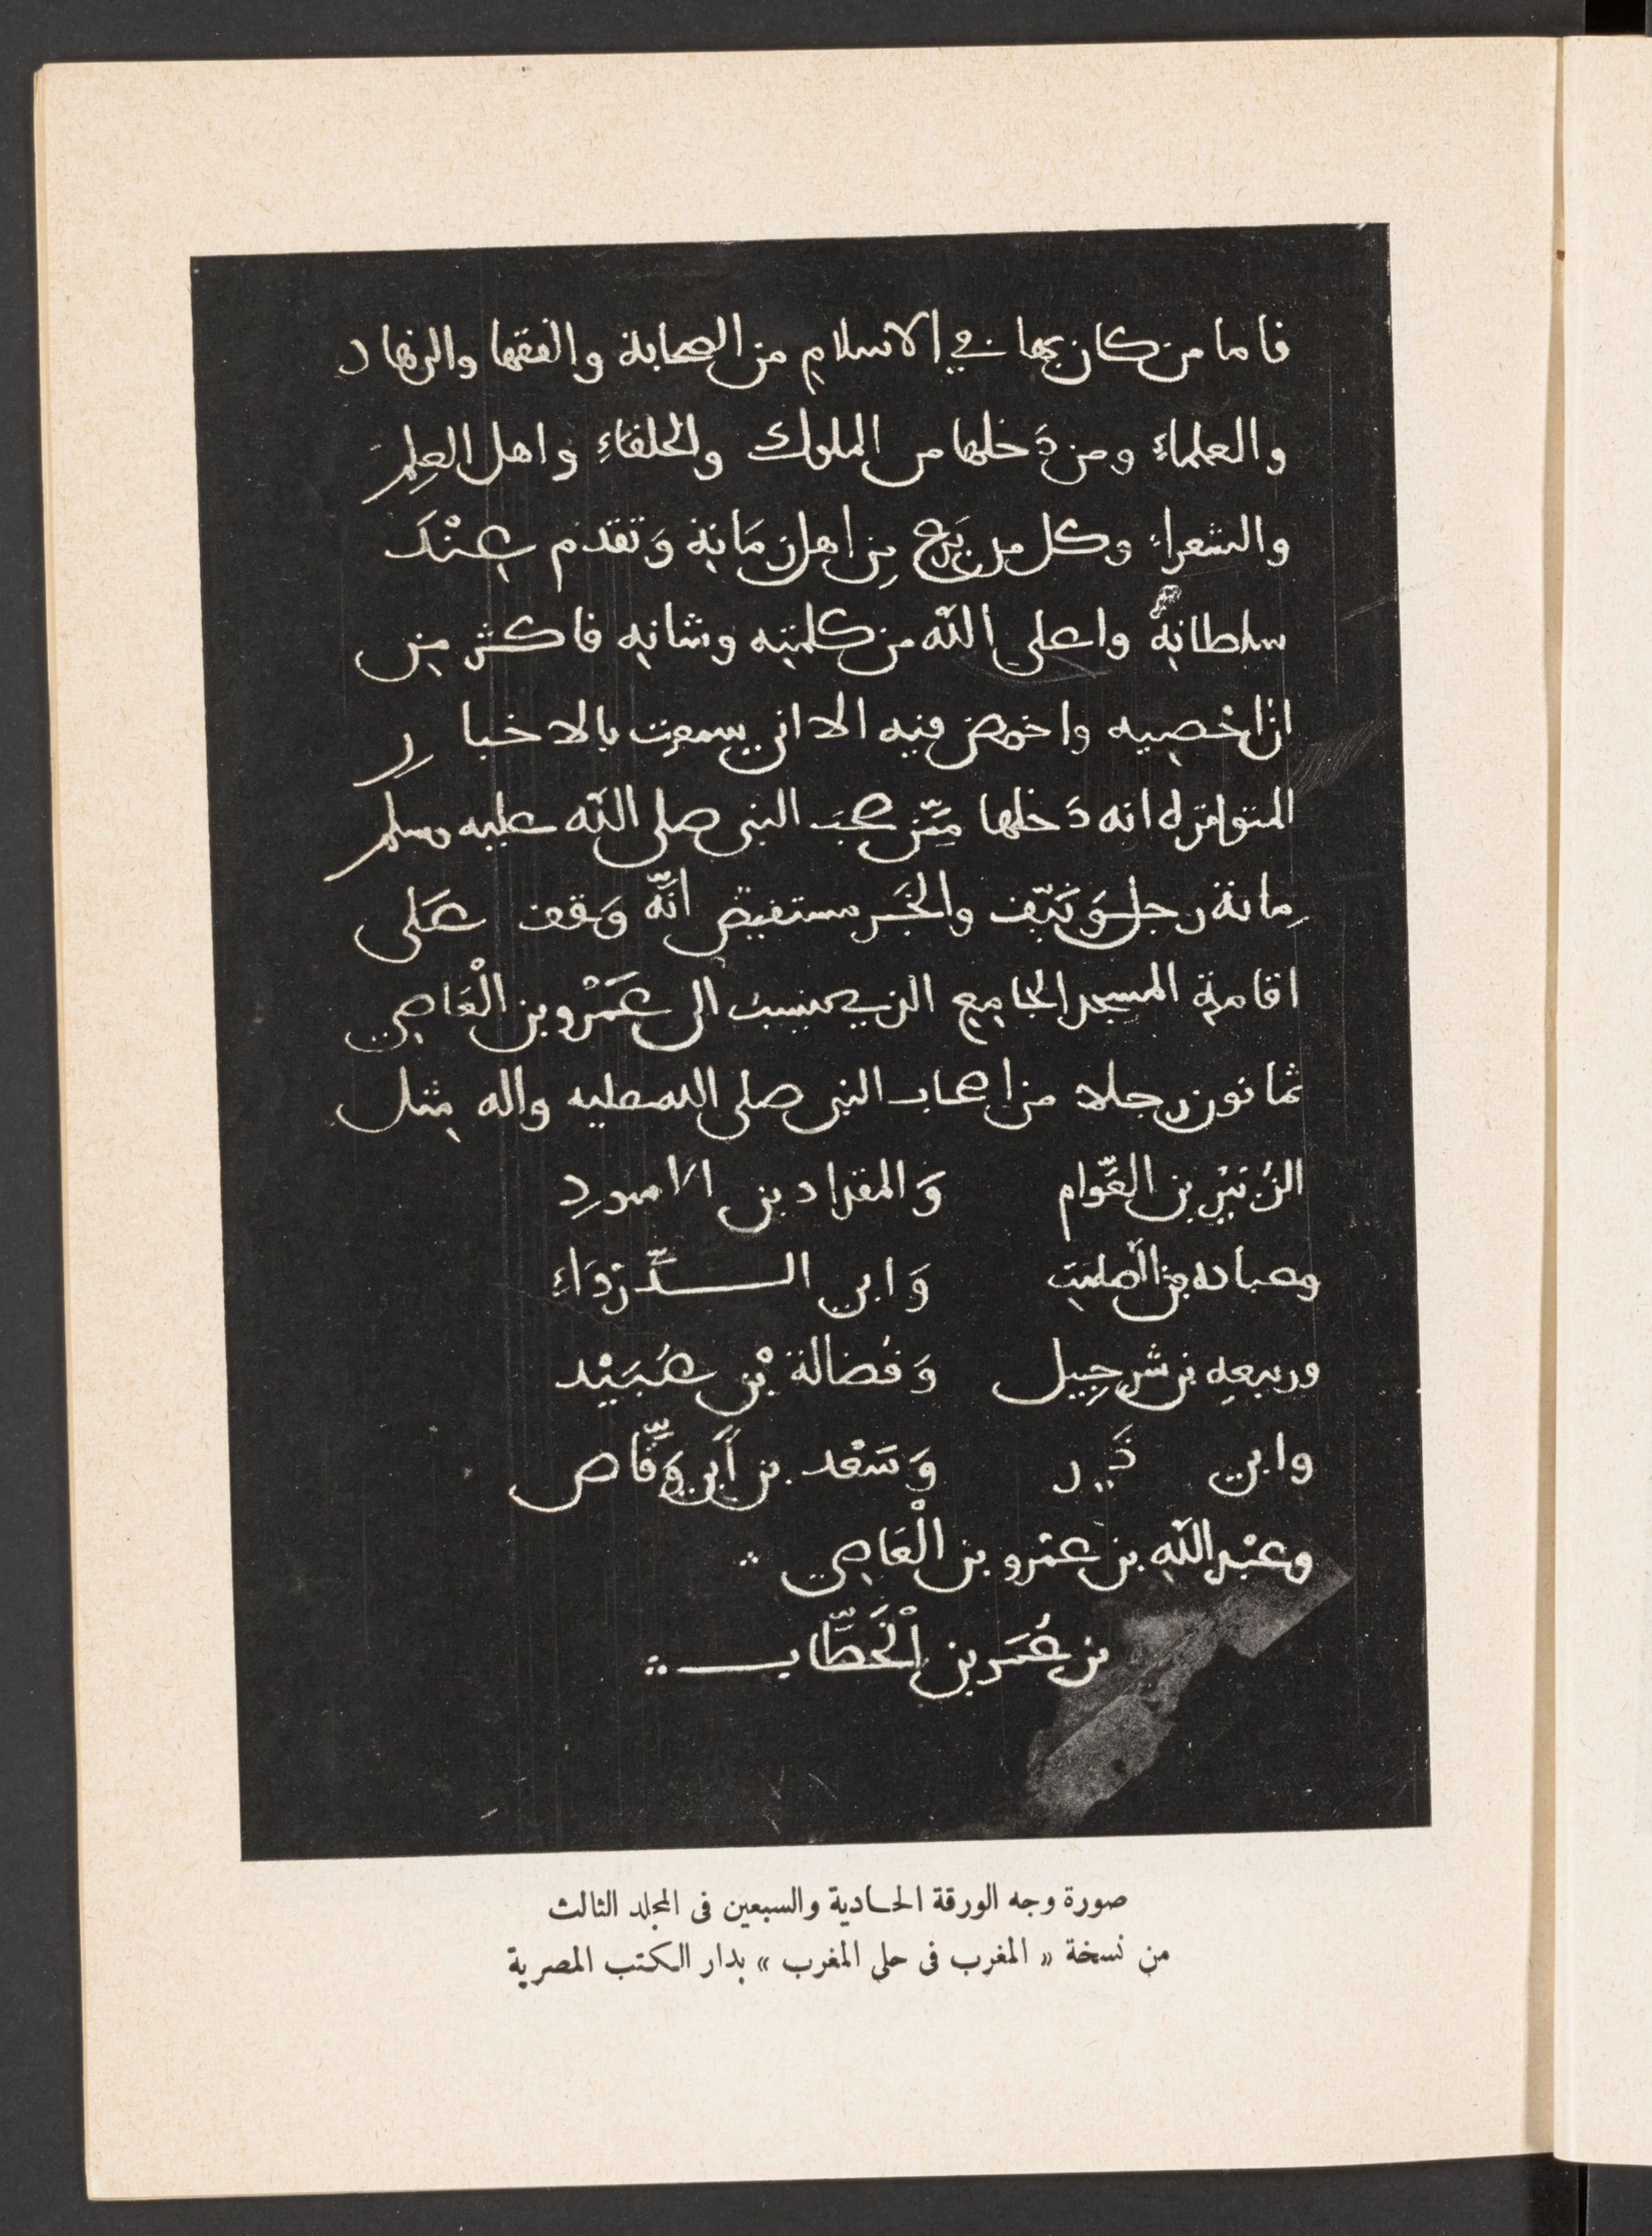 فاما من كان بها في الاسلام من الصحابة والفقها والزهاد
والعلماءِ ومن دَخلها من الملوك والخلفاءِ واهل العِلمِ
والشعراءِ وكل من بَرع مِن اهل زمَانِهِ وَتقدم عِنْدَ
سلطانِهِ واعلى اللّه من كلمتِه وشانِهِ فاكثر مِن
ان اُحْصِيه واخوض فيه الا انى سمعت بالاخبارِ
المتواترة انه دَخلها مِمّن صحبَ النبى صلى اللّه عليه وسلم
مِائة رجل وَنَيّف والخَبر مستفيض اَنَّه وَقف عَلى
اقامةِ المسجد الجامِع الذي ينسبُ الى عَمْرو بن الْعَاصِي
ثمانون رجلا من اصحاب النبى صلى الله عليه واله مِثل
الزُبَيْرِ بن العَّوام وَالمقداد بن الاسود
وعباده بن الصامِتِ وَابى الدّرْدَاءِ
وربيعهِ بن شرحِبيل وَفُضالة بْن عُبَيْد
وابى ذَر وَسَعْد بن أَبى وَقَّاص
وعبْد اللّهِ بن عمْرو بن الْعَاصِي
بن عُمَر بن الْخَطَّاب
صورة وجه الورقة الحادية والسبعين فى المجلد الثالث
من نسخة « المغرب فى حلى المغرب » بدار الكتب المصرية